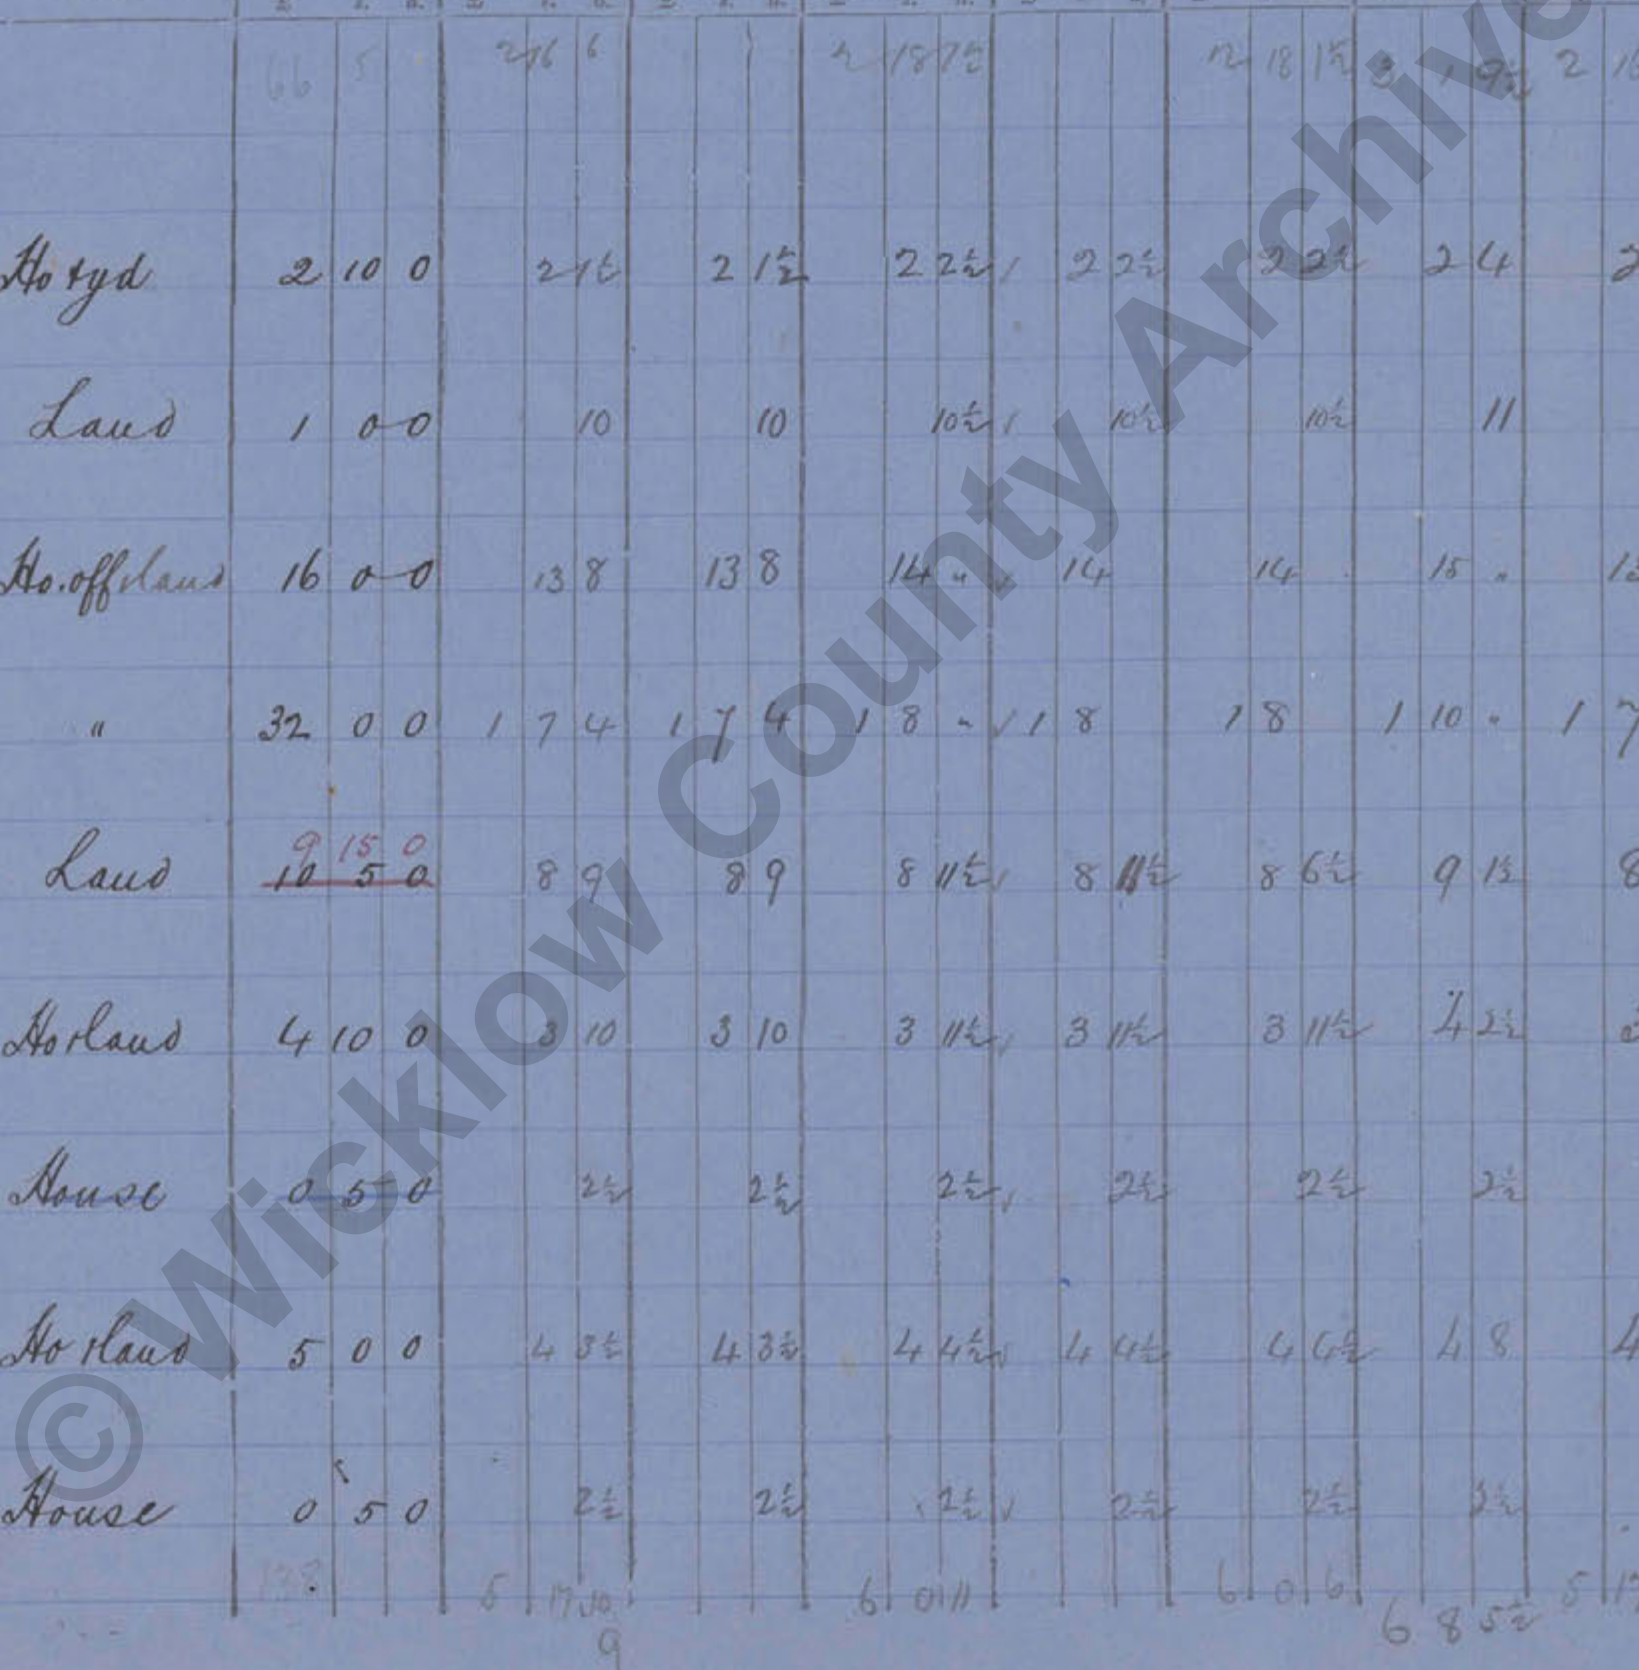 2 16 6 2 18 7½ 2 18 1½ 3 1 9½ 2
Ho & yd 2 10 0 2 1½ 2 1½ 2 2½ 2 2½ 2 2½ 2 4 2
Land 1 0 0 10 10 10½ 10½ 10½ 11
Ho. off & land 16 0 0 13 8 13 8 14 " 14 14 15 "
" 32 0 0 1 7 4 1 7 4 1 8 " 1 8 1 8 1 10 " 1 7
9 15 0
Land 10 5 0 8 9 8 9 8 11½ 8 11½ 8 6½ 9 1½ 8
Ho & land 4 10 0 3 10 3 10 3 11½ 3 11½ 3 11½ 4 2½ 3
House 0 5 0 2½ 2½ 2½ 2½ 2½ 2½
Ho & land 5 0 0 4 3½ 4 3½ 4 4½ 4 4½ 4 4½ 4 8 4
House 0 5 0 2½ 2½ 2½ 2½ 2½ 2½
5 17 10 6 0 11 6 0 6 6 8 5½ 5 17
9
© Wicklow County Archive